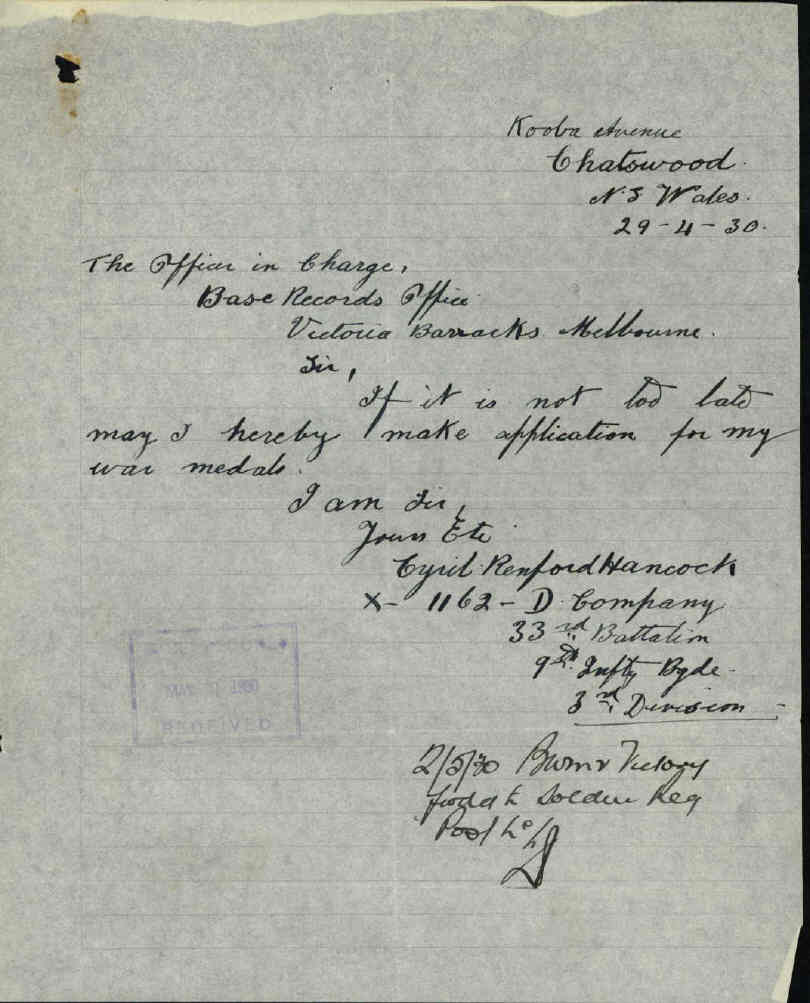 Kooba Avenue
Chatswood.
N.S Wales.
29-4-30.
The Officer in Charge,
Base Records Office
Victoria Barracks Melbourne.
Sir,
If it is not too late
may I hereby make application for my
war medals.
I am Sir,
Yours Etc
Cyril Renford Hancock
X- 1162 - D. Company
33rd Battalion
9th Infty Bgde.
3rd Division
MAY 1930
RECEIVED
2/5/30 Victory
fwded to Soldier Reg
Post